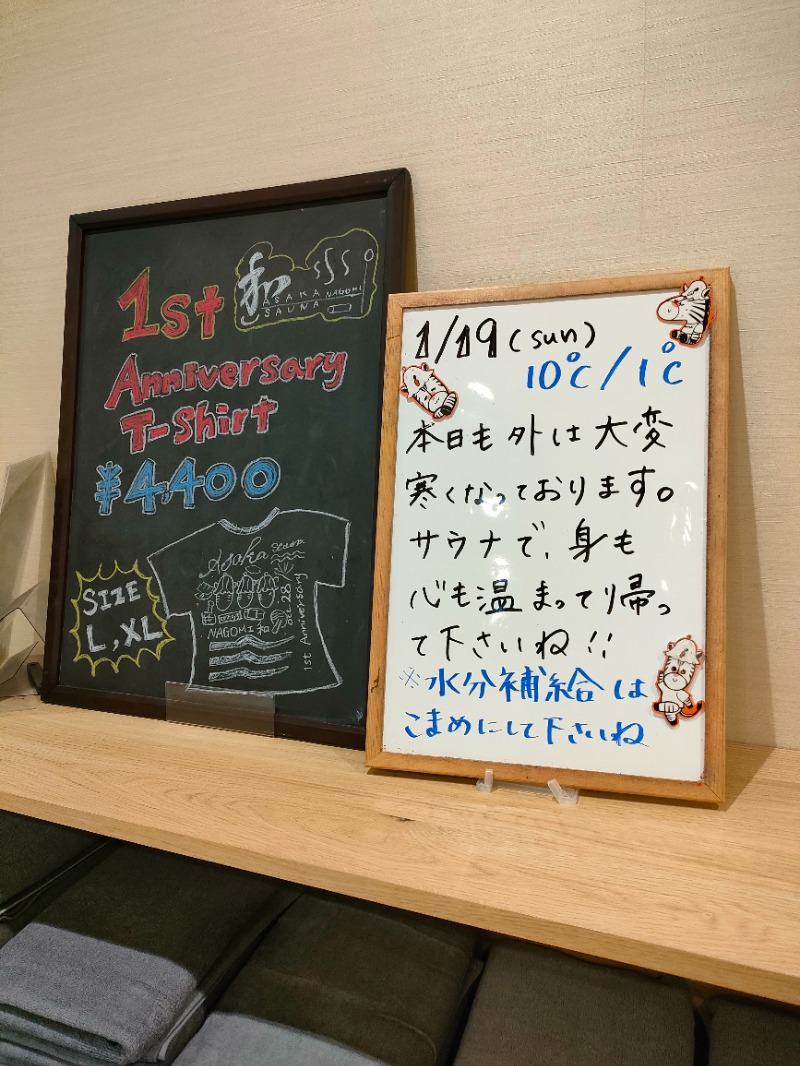 1st
和
ASAKA NAGOMI
SAUNA
Anniversary
T-Shirt
¥4,400
SIZE
L, XL
Asaka
NAGOMI 和
DEC. 28
1st Anniversary
1/19 (sun)
10℃/1℃
本日も外は大変
寒くなっております。
サウナで、身も
心も温まって帰っ
て下さいね!!
※水分補給は
こまめにして下さいね